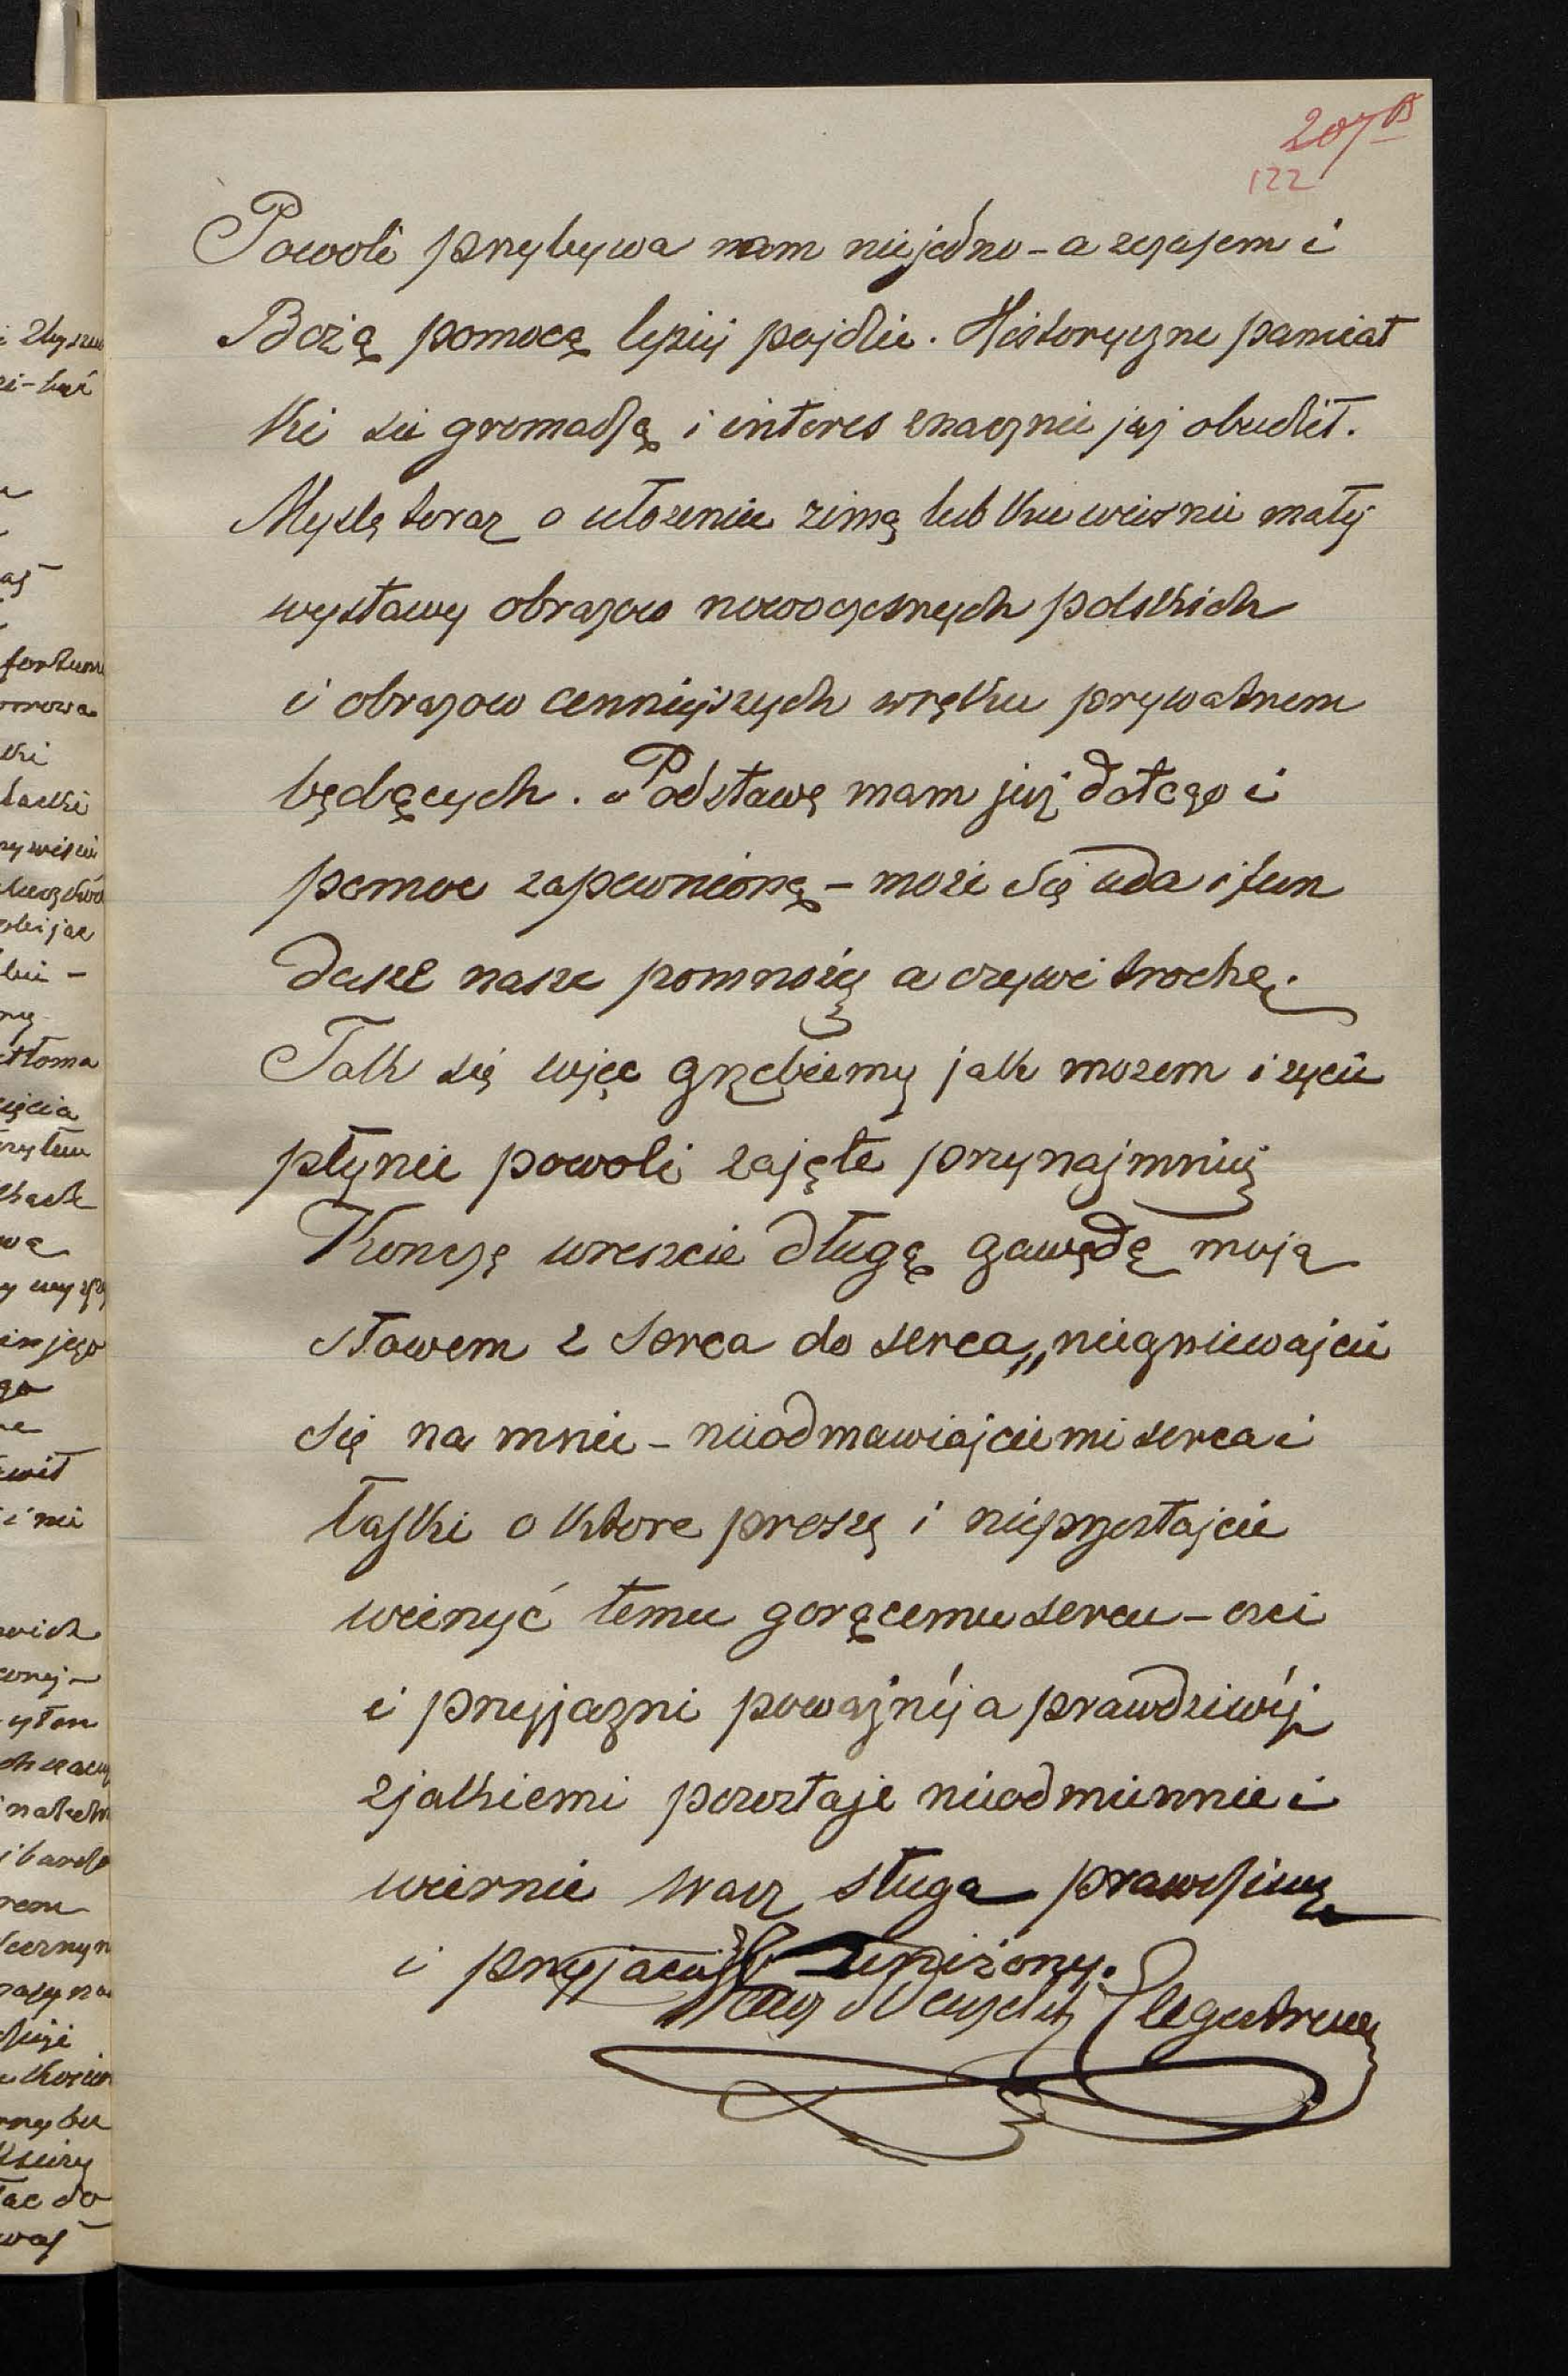 207 B
122
Powoli przybywa nam niejedno - a czasem i
Bożą pomocą lepiej pojdzie. Historyczne pamiat
ki sie gromadzą i interes znacznie jej obudził.
Myslę teraz o ułozeniu zimą lub ku wiosnie małej
wystawy obrazow nowoczesnych polskich
i obrazow cenniejszych wręku prywatnem
będących. Podstawę mam już dotego i
pomoc zapewnioną - może się uda i fun
dusze nasze pomnożę a ożywi trochę.
Tak się więc grzebiemy jak mozem i zycie
płynie powoli zajęte przynajmniej
Konczę wreszcie długą gawędę moją
słowem z serca do serca „niegniewajcie
się na mnie - nieodmawiajcie mi serca i
łaski o ktore proszę i nieprzestajcie
wierzyć temu gorącemu sercu - czci
i przyjazni powaznéj a prawdziwéj
zjakiemi pozostaje nieodmiennie i
wiernie wasz sługa prawdziwy
i przyjaciel unizony.